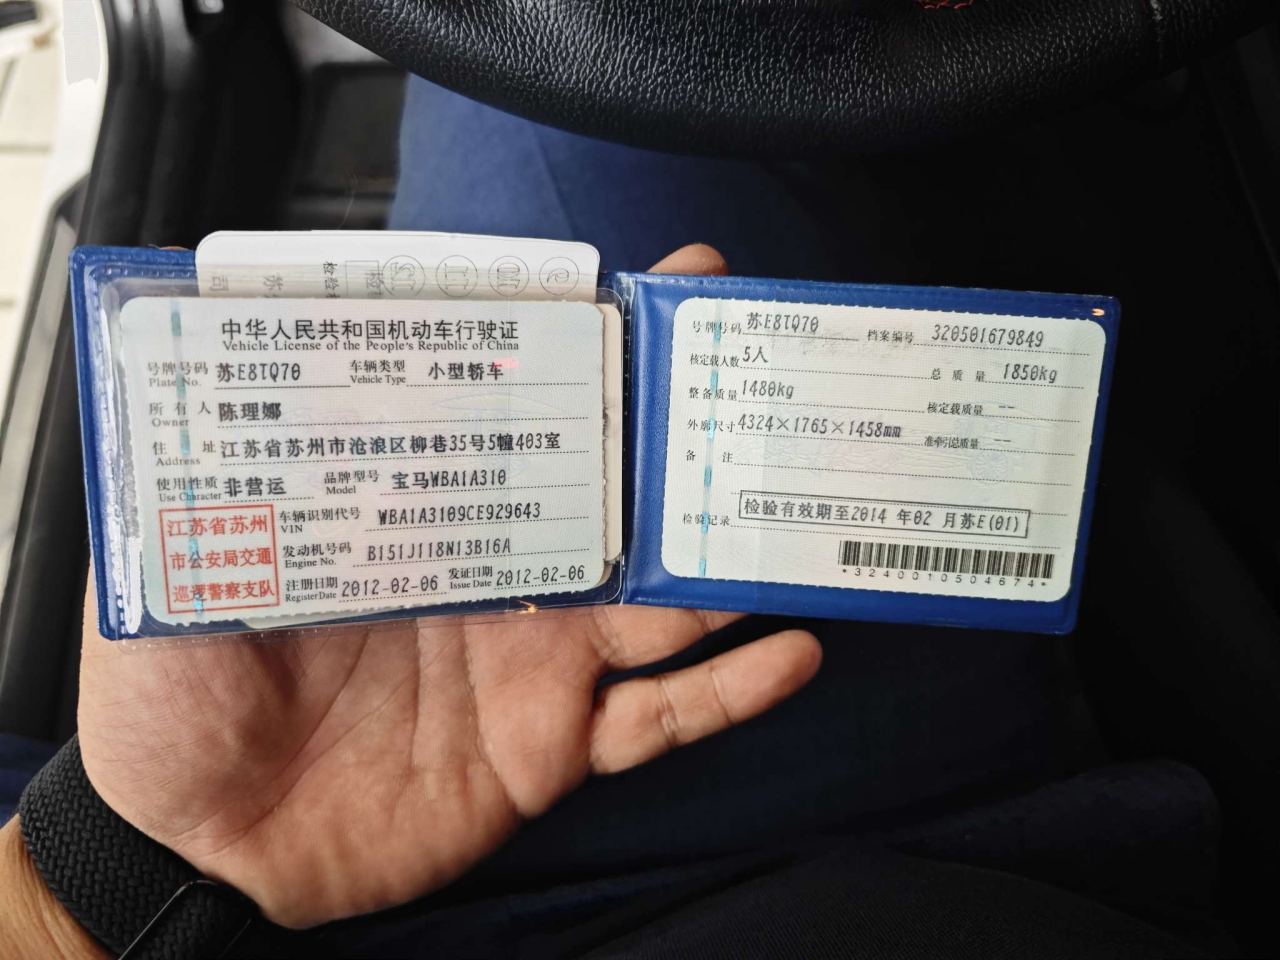 中华人民共和国机动车行驶证
Vehicle License of the People's Republic of China
号牌号码 苏E8TQ70 车辆类型 小型轿车
Plate No. Vehicle Type
所有人 陈理娜
Owner
住址 江苏省苏州市沧浪区柳巷35号5幢403室
Address
使用性质 非营运 品牌型号 宝马WBA1A310
Use Character Model
江苏省苏州
市公安局交通
巡逻警察支队
车辆识别代号 WBA1A3109CE929643
VIN
发动机号码 B151J118N13B16A
Engine No.
注册日期 2012-02-06 发证日期 2012-02-06
Register Date Issue Date
号牌号码 苏E8TQ70 档案编号 320501679849
核定载人数 5人 总质量 1850kg
整备质量 1480kg 核定载质量 --
外廓尺寸 4324×1765×1458mm 准牵引总质量 --
备注
检验记录 检验有效期至2014年02月苏E(01)
*3240010504674*